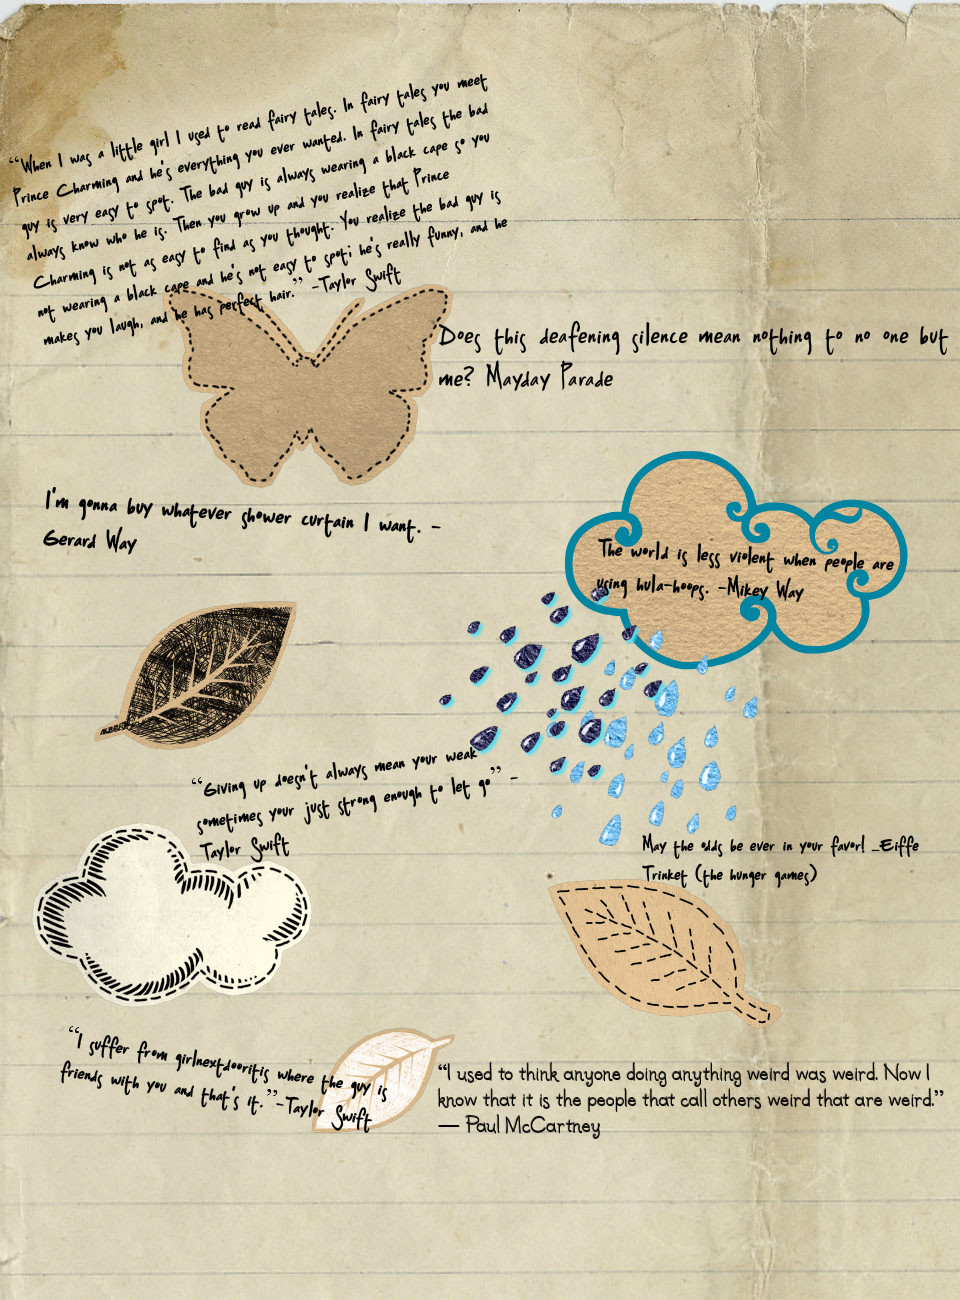 “When I was a little girl I used to read fairy tales. In fairy tales you meet
Prince Charming and he's everything you ever wanted. In fairy tales the bad
guy is very easy to spot. The bad guy is always wearing a black cape so you
always know who he is. Then you grow up and you realize that Prince
Charming is not as easy to find as you thought. You realize the bad guy is
not wearing a black cape and he's not easy to spot; he's really funny, and he
makes you laugh, and he has perfect hair.” -Taylor Swift
Does this deafening silence mean nothing to no one but
me? Mayday Parade
I'm gonna buy whatever shower curtain I want. -
Gerard Way
The world is less violent when people are
using hula-hoops. -Mikey Way
“Giving up doesn't always mean your weak
sometimes your just strong enough to let go” -
Taylor Swift
May the odds be ever in your favor! _Eiffe
Trinket (the hunger games)
“I suffer from girlnextdooritis where the guy is
friends with you and that's it.”-Taylor Swift
“I used to think anyone doing anything weird was weird. Now I
know that it is the people that call others weird that are weird.”
― Paul McCartney